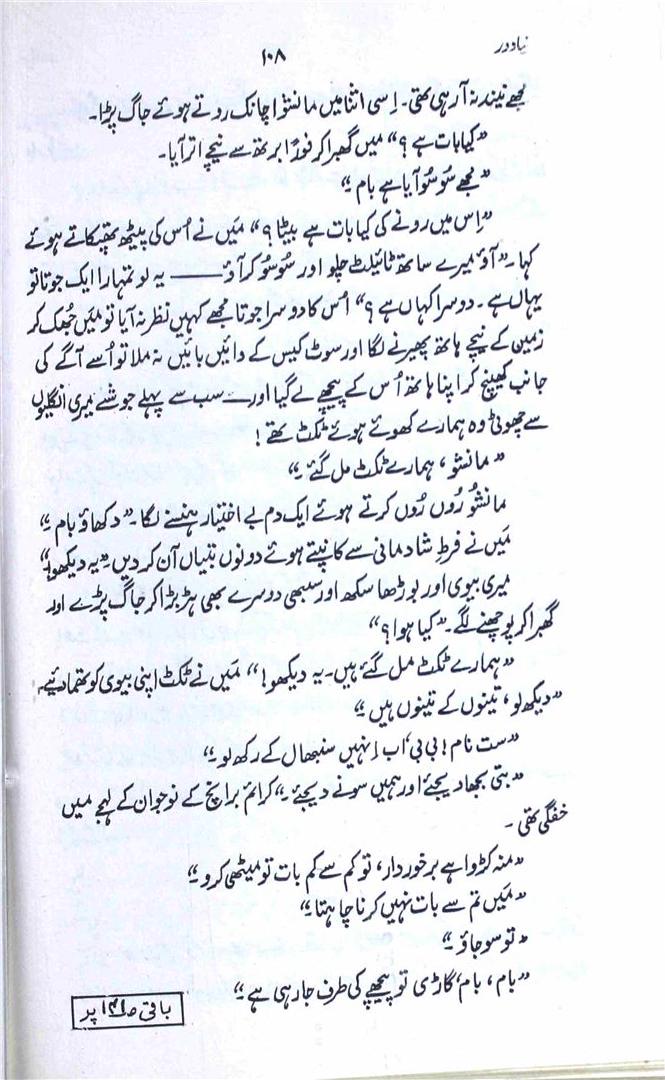 نیا دور
۱۰۸
مجھے نیند نہ آ رہی تھی۔ اِسی اثنا میں مانشو اچانک روتے ہوئے جاگ پڑا۔
”کیا بات ہے؟“ میں گھبرا کر فوراً برتھ سے نیچے اتر آیا۔
”مجھے سُوسُو آیا ہے بام۔“
”اِس میں رونے کی کیا بات ہے بیٹا؟“ مَیں نے اُس کی پیٹھ تھپکاتے ہوئے
کہا۔ ”آؤ میرے ساتھ ٹائیلٹ چلو اور سُوسُو کر آؤ ـــــــ یہ لو تمہارا ایک جوتا تو
یہاں ہے۔ دوسرا کہاں ہے؟“ اُس کا دوسرا جوتا مجھے کہیں نظر نہ آیا تو مَیں جُھک کر
زمین کے نیچے ہاتھ پھیرنے لگا اور سوٹ کیس کے دائیں بائیں نہ ملا تو اُسے آگے کی
جانب کھینچ کر اپنا ہاتھ اُس کے پیچھے لے گیا اور ــــ سب سے پہلے جو شئے میری انگلیوں
سے چھوئی وہ ہمارے کھوئے ہوئے ٹکٹ تھے!
”مانشو، ہمارے ٹکٹ مل گئے۔“
مانشُو رُوں رُوں کرتے ہوئے ایک دم بے اختیار ہنسنے لگا۔ ”دکھاؤ بام۔“
مَیں نے فرطِ شادمانی سے کانپتے ہوئے دونوں بتیاں آن کر دیں۔ ”یہ دیکھو!“
میری بیوی اور بوڑھا سکھ اور سبھی دوسرے بھی ہڑبڑا کر جاگ پڑے اور
گھبرا کر پوچھنے لگے۔ ”کیا ہوا؟“
”ہمارے ٹکٹ مل گئے ہیں۔ یہ دیکھو!“ مَیں نے ٹکٹ اپنی بیوی کو تھما دئیے۔
”دیکھ لو، تینوں کے تینوں ہیں۔“
”ست نام! بی بی، اب اِنہیں سنبھال کے رکھ لو۔“
”بتی بجھا دیجئے اور ہمیں سونے دیجئے۔“ کرائم برانچ کے نوجوان کے لہجے میں
خفگی تھی۔
”منہ کڑوا ہے برخوردار، تو کم سے کم بات تو میٹھی کرو۔“
”مَیں تم سے بات نہیں کرنا چاہتا۔“
”تو سو جاؤ۔“
”بام، بام، گاڑی تو پیچھے کی طرف جا رہی ہے۔“
باقی ص۱۴۱ پر